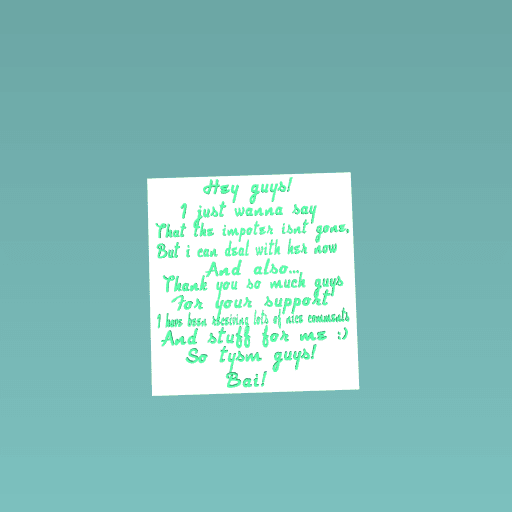 Hey guys!
I just wanna say
That the impoter isnt gone,
But i can deal with her now
And also...
Thank you so much guys
For your support
I have been recesiving lots of nice comments
And stuff for me :)
So tysm guys!
Bai!